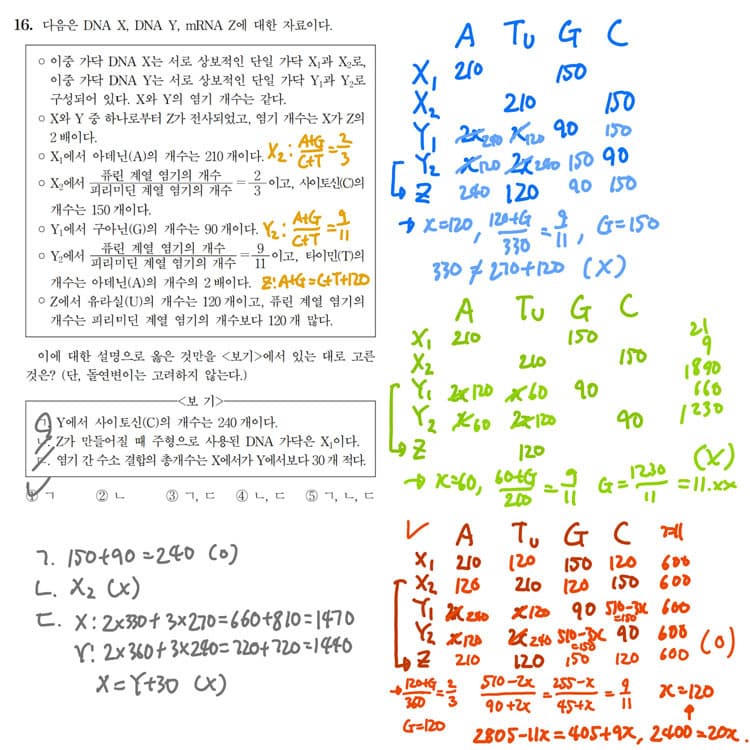 16. 다음은 DNA X, DNA Y, mRNA Z에 대한 자료이다.
○ 이중 가닥 DNA X는 서로 상보적인 단일 가닥 X₁과 X₂로,
이중 가닥 DNA Y는 서로 상보적인 단일 가닥 Y₁과 Y₂로
구성되어 있다. X와 Y의 염기 개수는 같다.
○ X와 Y 중 하나로부터 Z가 전사되었고, 염기 개수는 X가 Z의
2배이다.
○ X₁에서 아데닌(A)의 개수는 210개이다. X₂: A+G/C+T = 2/3
○ X₂에서 퓨린 계열 염기의 개수/피리미딘 계열 염기의 개수 = 2/3이고, 사이토신(C)의
개수는 150개이다.
○ Y₁에서 구아닌(G)의 개수는 90개이다. Y₂: A+G/C+T = 9/11
○ Y₂에서 퓨린 계열 염기의 개수/피리미딘 계열 염기의 개수 = 9/11이고, 타이민(T)의
개수는 아데닌(A)의 개수의 2배이다. Z: A+G=C+T+120
○ Z에서 유라실(U)의 개수는 120개이고, 퓨린 계열 염기의
개수는 피리미딘 계열 염기의 개수보다 120개 많다.
이에 대한 설명으로 옳은 것만을 <보기>에서 있는 대로 고른
것은? (단, 돌연변이는 고려하지 않는다.)
<보 기>
ㄱ. Y에서 사이토신(C)의 개수는 240개이다.
ㄴ. Z가 만들어질 때 주형으로 사용된 DNA 가닥은 X₁이다.
ㄷ. 염기 간 수소 결합의 총개수는 X에서가 Y에서보다 30개 적다.
① ㄱ ② ㄴ ③ ㄱ, ㄷ ④ ㄴ, ㄷ ⑤ ㄱ, ㄴ, ㄷ
ㄱ. 150+90=240 (O)
ㄴ. X₂ (X)
ㄷ. X: 2x330+3x270=660+810=1470
Y: 2x360+3x240=720+720=1440
X=Y+30 (X)
A Tu G C
X₁ 210 150
X₂ 210 150
Y₁ 2x 240 x 120 90 150
Y₂ x 120 2x 240 150 90
Z 240 120 90 150
→ x=120, 120+G/330 = 9/11, G=150
330≠270+120 (X)
A Tu G C
X₁ 210 150
X₂ 210 150
Y₁ 2x 120 x 60 90
Y₂ x 60 2x 120 90
Z 120
21
9
1890
660
1230
(X)
→ x=60, 60+G/210 = 9/11 G=1230/11 =11.xx
✓ A Tu G C 계
X₁ 210 120 150 120 600
X₂ 120 210 120 150 600
Y₁ 2x 240 x 120 90 510-3x =150 600
Y₂ x 120 2x 240 510-3x =150 90 600
Z 210 120 150 120 600
(O)
→ 120+G/360 = 2/3 510-2x/90+2x = 255-x/45+x = 9/11 x=120
G=120 2805-11x=405+9x, 2400=20x.